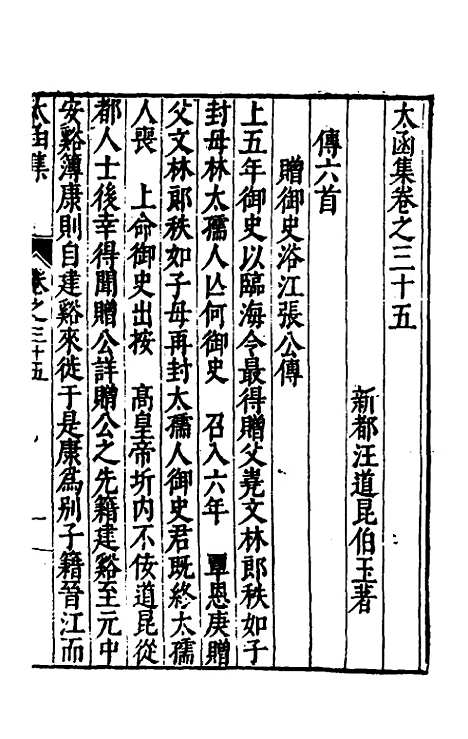 太函集卷之三十五
新都汪道昆伯玉著
傳六首
贈御史洛江張公傳
上五年御史以臨海令最得贈父堯文林郎秩如子
封母林太孺人亾何御史 召入六年 覃恩庚贈
父文林郎秩如子母再封太孺人御史君既終太孺
人喪 上命御史出按 高皇帝圻内不佞道昆從
都人士後幸得聞贈公詳贈公之先籍建谿至元中
安谿簿康則自建谿來徙于是康爲別子籍晉江而
太函集 卷之三十五 一